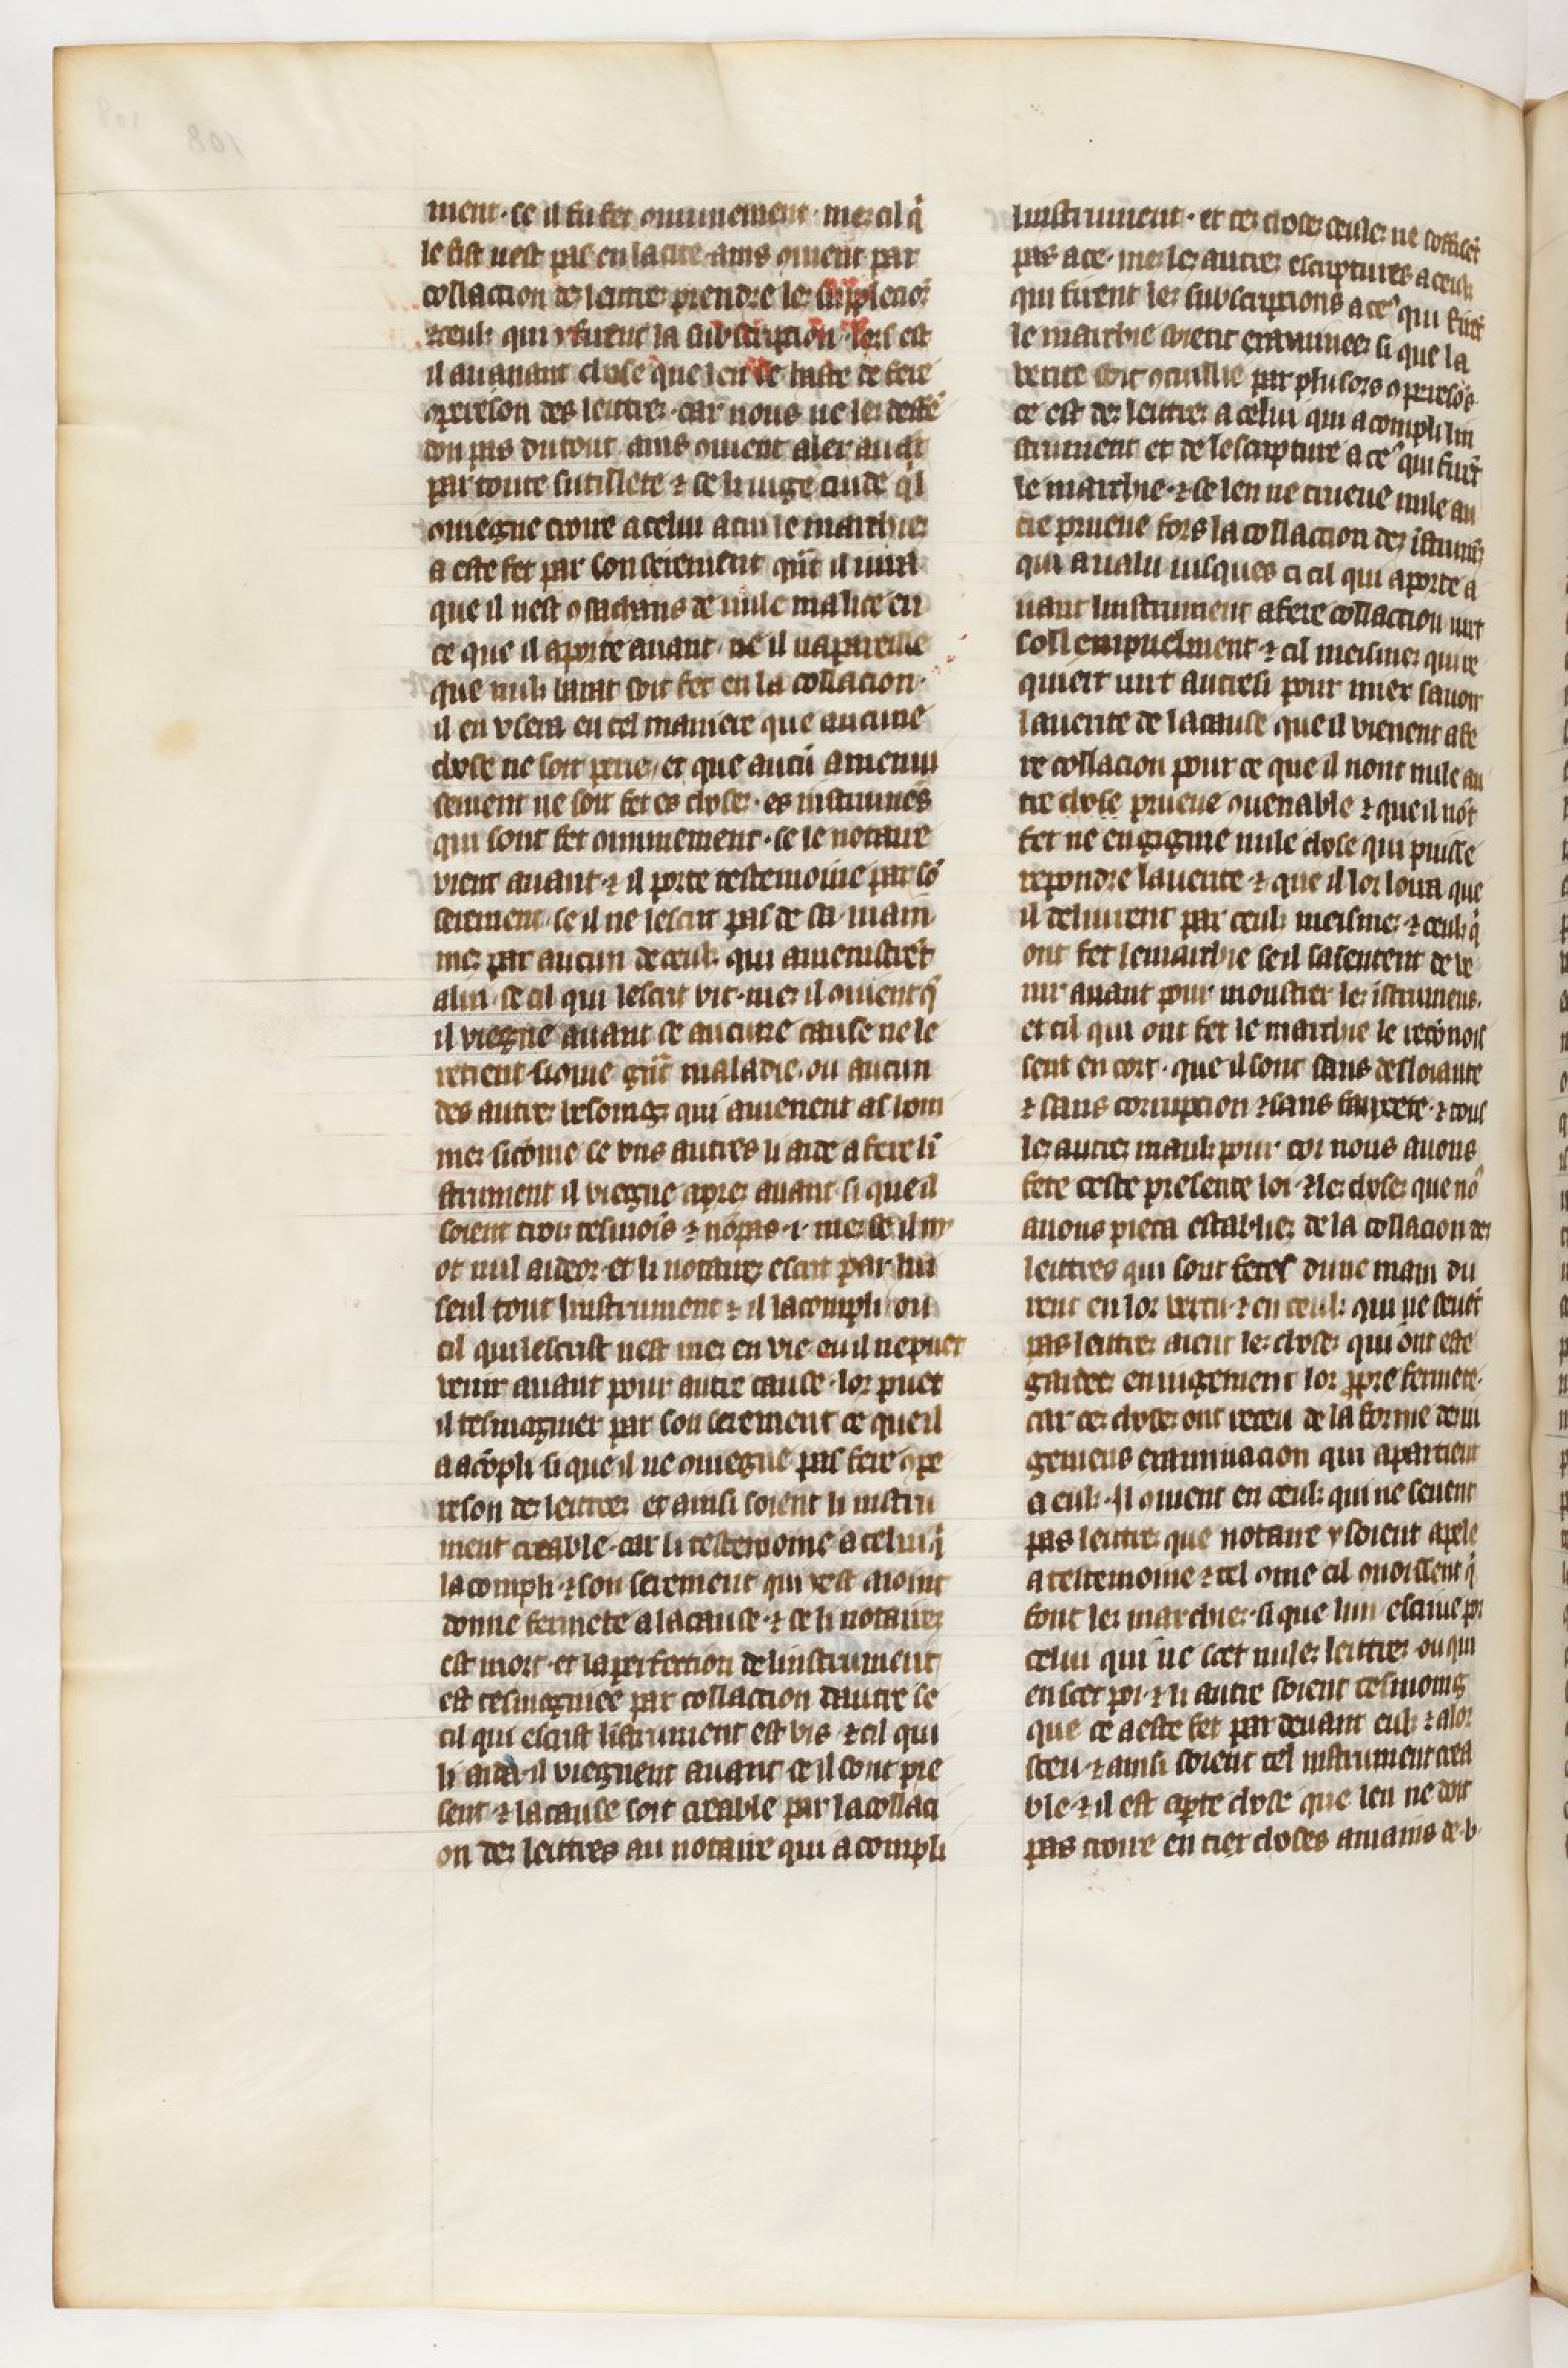 ment· se il fu fet ꝯmunement· mes cil q̍
le fist nest pas en la cite ains ꝯuient par
collaction des lettres prendre les suppleciōs
⁊ ceuls qui y firent la subscription· lors est
il auanant chose que len se haste de fere
ꝯpereison des lettres· car nous ne les deffē
don pas du tout ains ꝯuient aler auāt
par toute sutillete ⁊ se li iuge cuide q̍l
ꝯuiegne croire a celui a cui le marchie
a este fet par son seremēt q̍nt il iura
que il nest ꝯsachans de nule malice en
ce que il aporte auant· ne il napareille
que nuls barat soit fet en la collacion·
il en vsera en tel maniere que aucune
chose ne soit perie, et que aucū amenui
sement ne soit fet es choses· es instrumēs
qui sont fet ꝯmunement· se le notaire
vient auant ⁊ il porte testemoine par sō
serement· se il ne lescrit pas de sa main
mes par aucun de ceuls qui amenistrēt
a lui· se cil qui lescrit vit· mes il ꝯuient q̍
il viegne auant se aucune cause ne le
retient· si ꝯme g̍nt maladie· ou aucun
des autres besoings qui auienent as hom
mes· si cōme se vns autres li aide a fere li
strument il viegne apres auant· si que il
soient troi tesmoīs ⁊ nōpas ·i· mes se il ny
ot nul aideor· et li notaires escrit par lui
seul tout linstrument ⁊ il lacompli· ou
cil qui lescrist nest mes en vie ou il ne puet
venir auant pour autre cause· lor puet
il tesmoigner par son serement ce que il
a acōpli· si que il ne ꝯuiegne pas fere ꝯpe
reison des lettres· et ainsi soient li instru
ment creable· car li testemoine a celui q̍
lacompli· ⁊ son serement qui yest aioint
donne fermete a la cause· ⁊ se li notaires
est mort· et la perfection de linstrument
est tesmoigniee par collaction dautre se
cil qui escrist listrument est vis ⁊ cil qui
li aida il viegnent auant se il sont pre
sent ⁊ la cause soit creable par la collaci
on des lettres au notaire qui a compli
linstrument· et ces choses ceules ne soffisēt
pas a ce· mes les autres escriptures a ceuls
qui firent les subscriptions a ceꝰ qui firēt
le marchie soient examinees si que la
verite soit ꝯcuillie par plusors ꝯpereisōs·
ce est des lettres a celui qui acompli lin
strument et de lescripture a ceꝰ qui firēt
le marchie· ⁊ se len ne trueue nule au
tre prueue fors la collaction des īstrumēs
qui a ualu iusques ci cil qui aporte a
uant linstrument a fere collaction iurt
sollempnelment· ⁊ cil meismes qui re
quiert iurt autresi pour miex sauoir
la uerite de la cause que il vienent a fe
re collacion pour ce que il nont nule au
tre chose prueue ꝯuenable ⁊ que il nōt
fet ne engignie nule chose qui puisse
repondre la uerite· ⁊ que il lor loira que
il deliurent par ceuls meismes ⁊ ceuls q̍
ont fet le marchie se il sasentent de ve
nir auant pour moustrer les istrumens·
et cil qui ont fet le marchie le recōnois
sent en cort· que il sont sans desloiaute
⁊ sans corrupcion ⁊ sans faussete· ⁊ tous
les autres mauls pour coi nous auons
fete ceste presente loi· ⁊ les choses que noꝰ
auons pieca establies de la collacion des
lettres qui sont fetes dune main du
rent en lor vertu· ⁊ en ceuls qui ne seuēt
pas lettres aient les choses qui ont este
gardees en iugement lor ꝓpre fermete·
car ces choses ont receu de la forme de iu
gemens examinacion qui apartient
a euls· Il ꝯuient en ceuls qui ne seuent
pas lettres que notaire y soient apele
a testemoine ⁊ tel ꝯme cil ꝯnoissent q̍
font les marchies· si que lun escriue pꝛ
celui qui ne set nules lettres· ou qui
en set poi· ⁊ li autre soient tesmoing
que ce a este fet par deuant euls ⁊ a lor
seu· ⁊ ainsi soient tel instrument crea
ble· ⁊ il est aperte chose que len ne doit
pas croire en tier choses a mains de ·v·